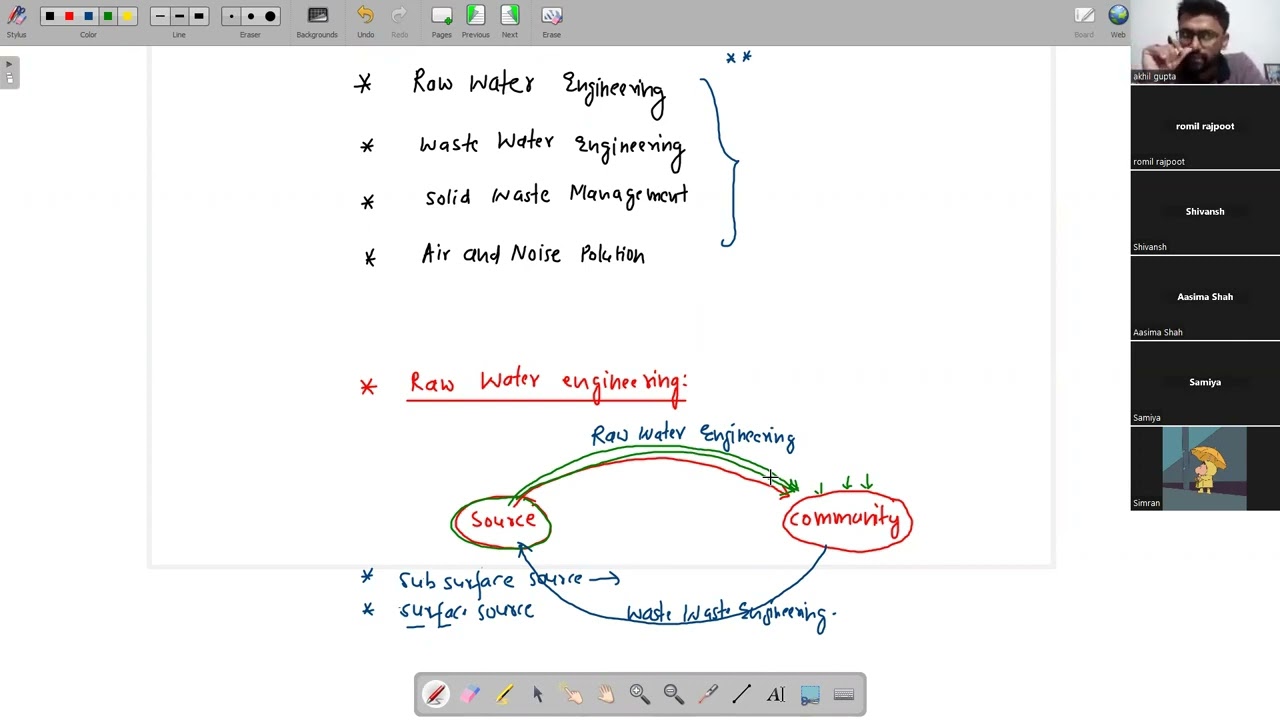 Stylus Color Line Eraser Backgrounds Undo Redo Pages Previous Next Erase Board Web
akhil gupta
romil rajpoot
romil rajpoot
Shivansh
Shivansh
Aasima Shah
Aasima Shah
Samiya
Samiya
Simran
* *
* Raw Water Engineering
* Waste Water Engineering
* Solid Waste Management
* Air and Noise Polution
* Raw Water engineering:
Raw Water Engineering
Source
Community
* Sub surface source →
* surface source
Waste Waste Engineering.
AI